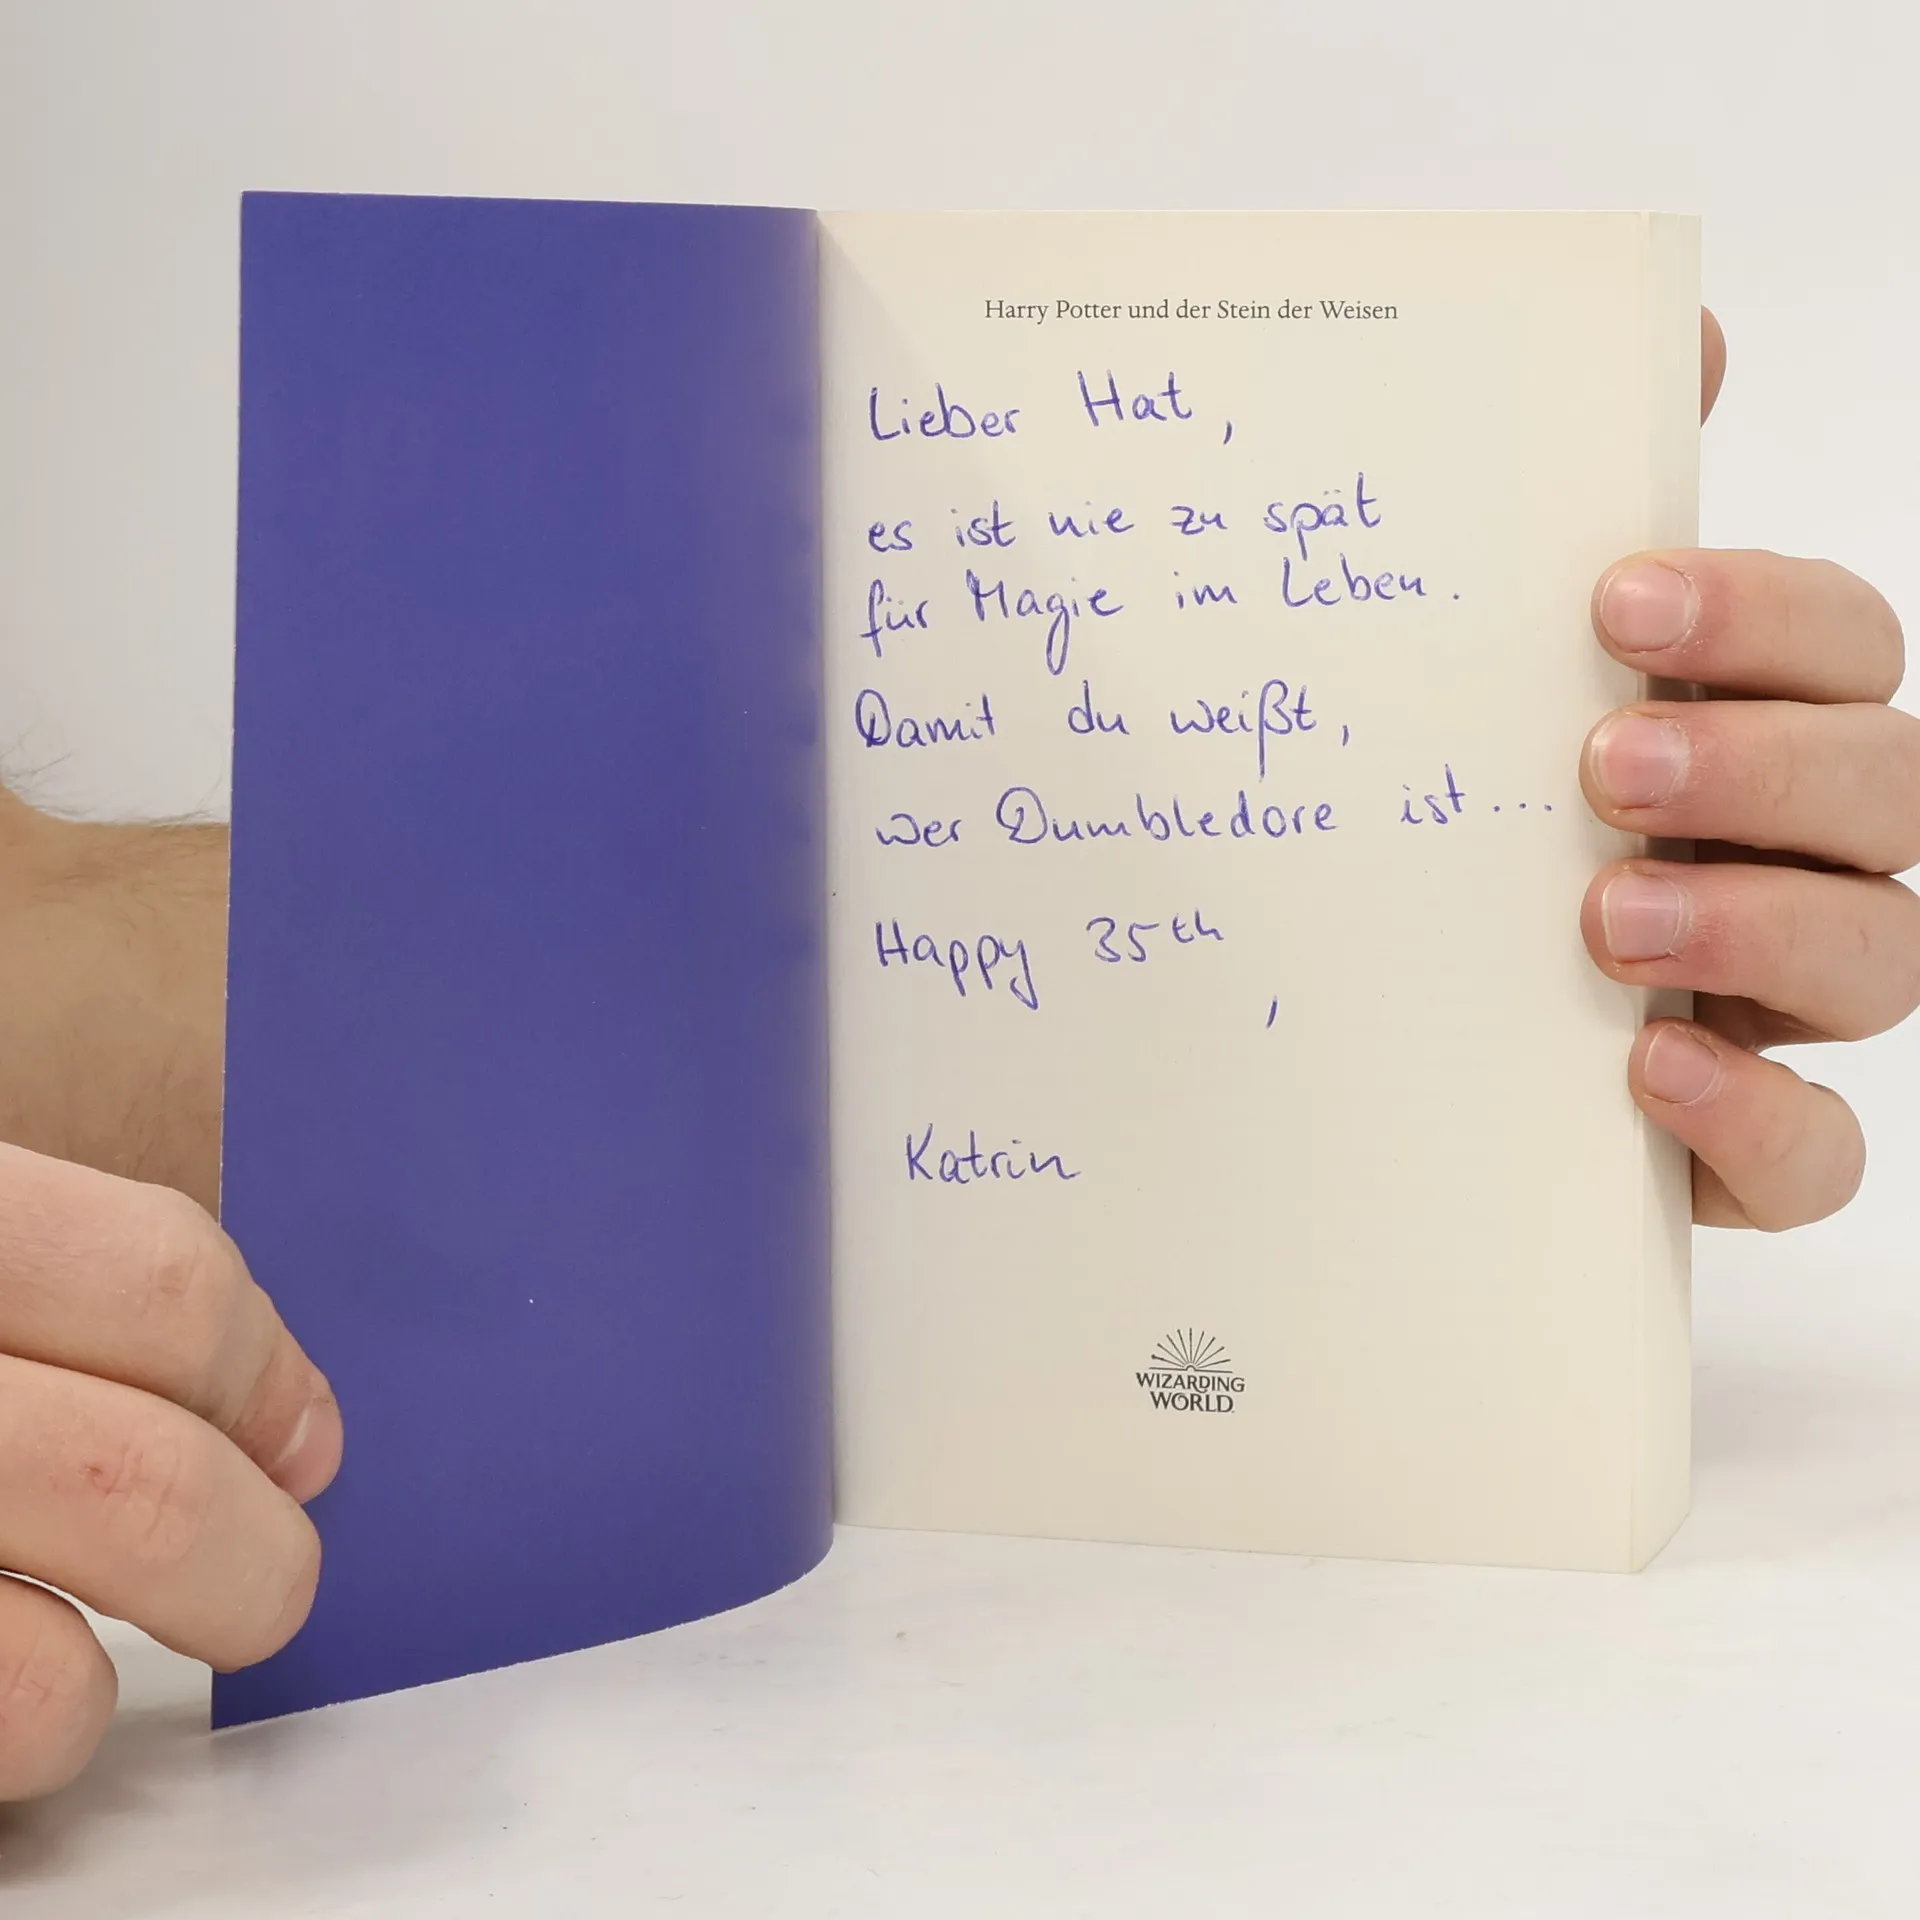 Harry Potter und der Stein der Weisen
Lieber Hat,
es ist nie zu spät
für Magie im Leben.
Damit du weißt,
wer Dumbledore ist...
Happy 35th,
Katrin
WIZARDING
WORLD